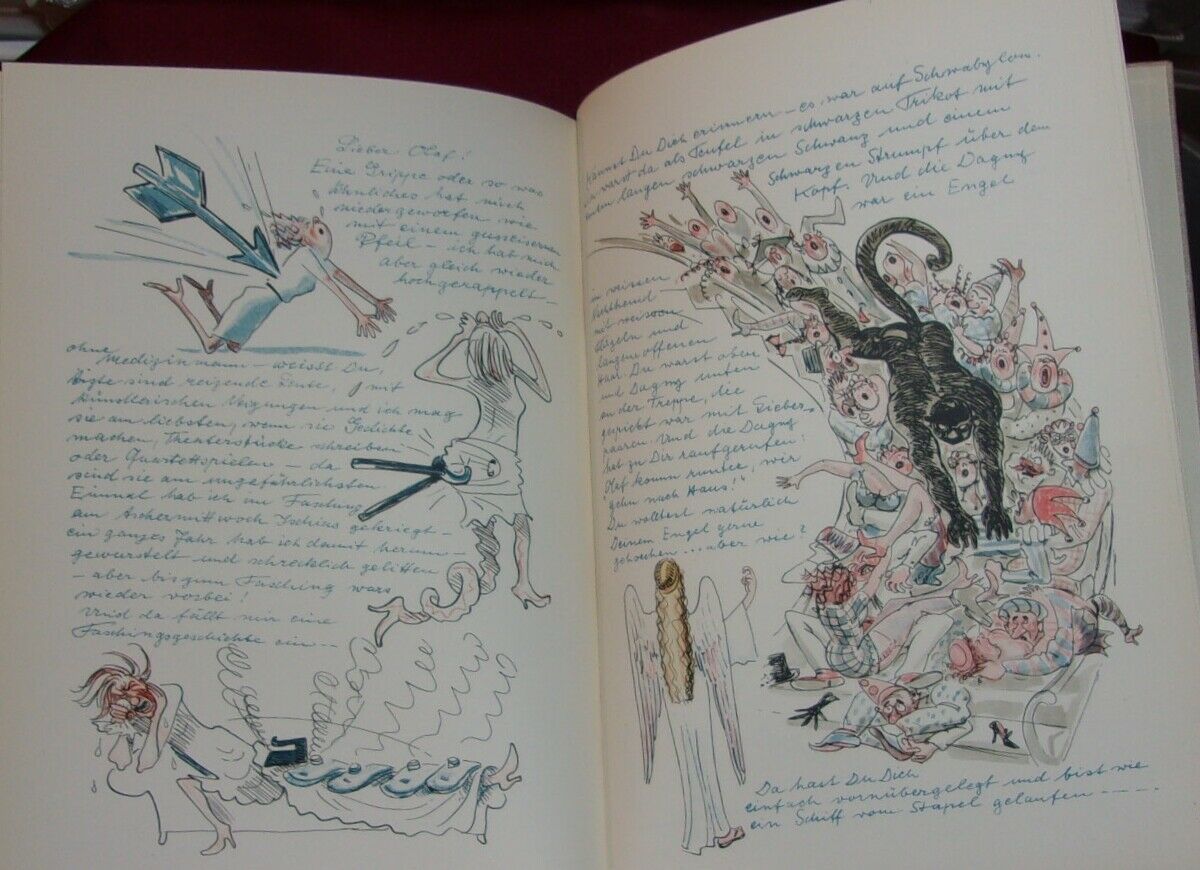 Lieber Olaf!
Eine Grippe oder so was
Ähnliches hat mich
niedergeworfen wie
mit einem gusseisernen
Pfeil – ich hab mich
aber gleich wieder
hochgerappelt –
ohne Medizinmann – weisst Du,
Ärzte sind reizende Leute, mit
künstlerischen Neigungen und ich mag
sie am liebsten, wenn sie Gedichte
machen, Theaterstücke schreiben
oder Quartettspielen – da
sind sie am ungefährlichsten
Einmal hab ich im Fasching
am Aschermittwoch Ischias gekriegt –
ein ganzes Jahr hab ich damit herum–
gewurstelt und schrecklich gelitten
– aber bis zum Fasching wars
wieder vorbei!
Und da fällt mir eine
Faschingsgeschichte ein --
Kannst Du Dich erinnern – es war auf Schwabylon.
Du warst da als Teufel in schwarzen Trikot mit
einen langen schwarzen Schwanz und einem
schwarzen Strumpf über dem
Kopf. Und die Dagny
war ein Engel
in weissen
Nachthemd
mit weissen
Flügeln und
langen offenen
Haar. Du warst oben
und Dagny unten
an der Treppe, die
gespickt war mit Lieber–
paaren. Und die Dagny
hat zu Dir raufgerufen:
Olaf komm runter, wir
gehn nach Haus!"
Du wolltest natürlich
Deinem Engel gerne
gehorchen ... aber wie?
Da hast Du Dich
einfach vornübergelegt und bist wie
ein Schiff vom Stapel gelaufen ----